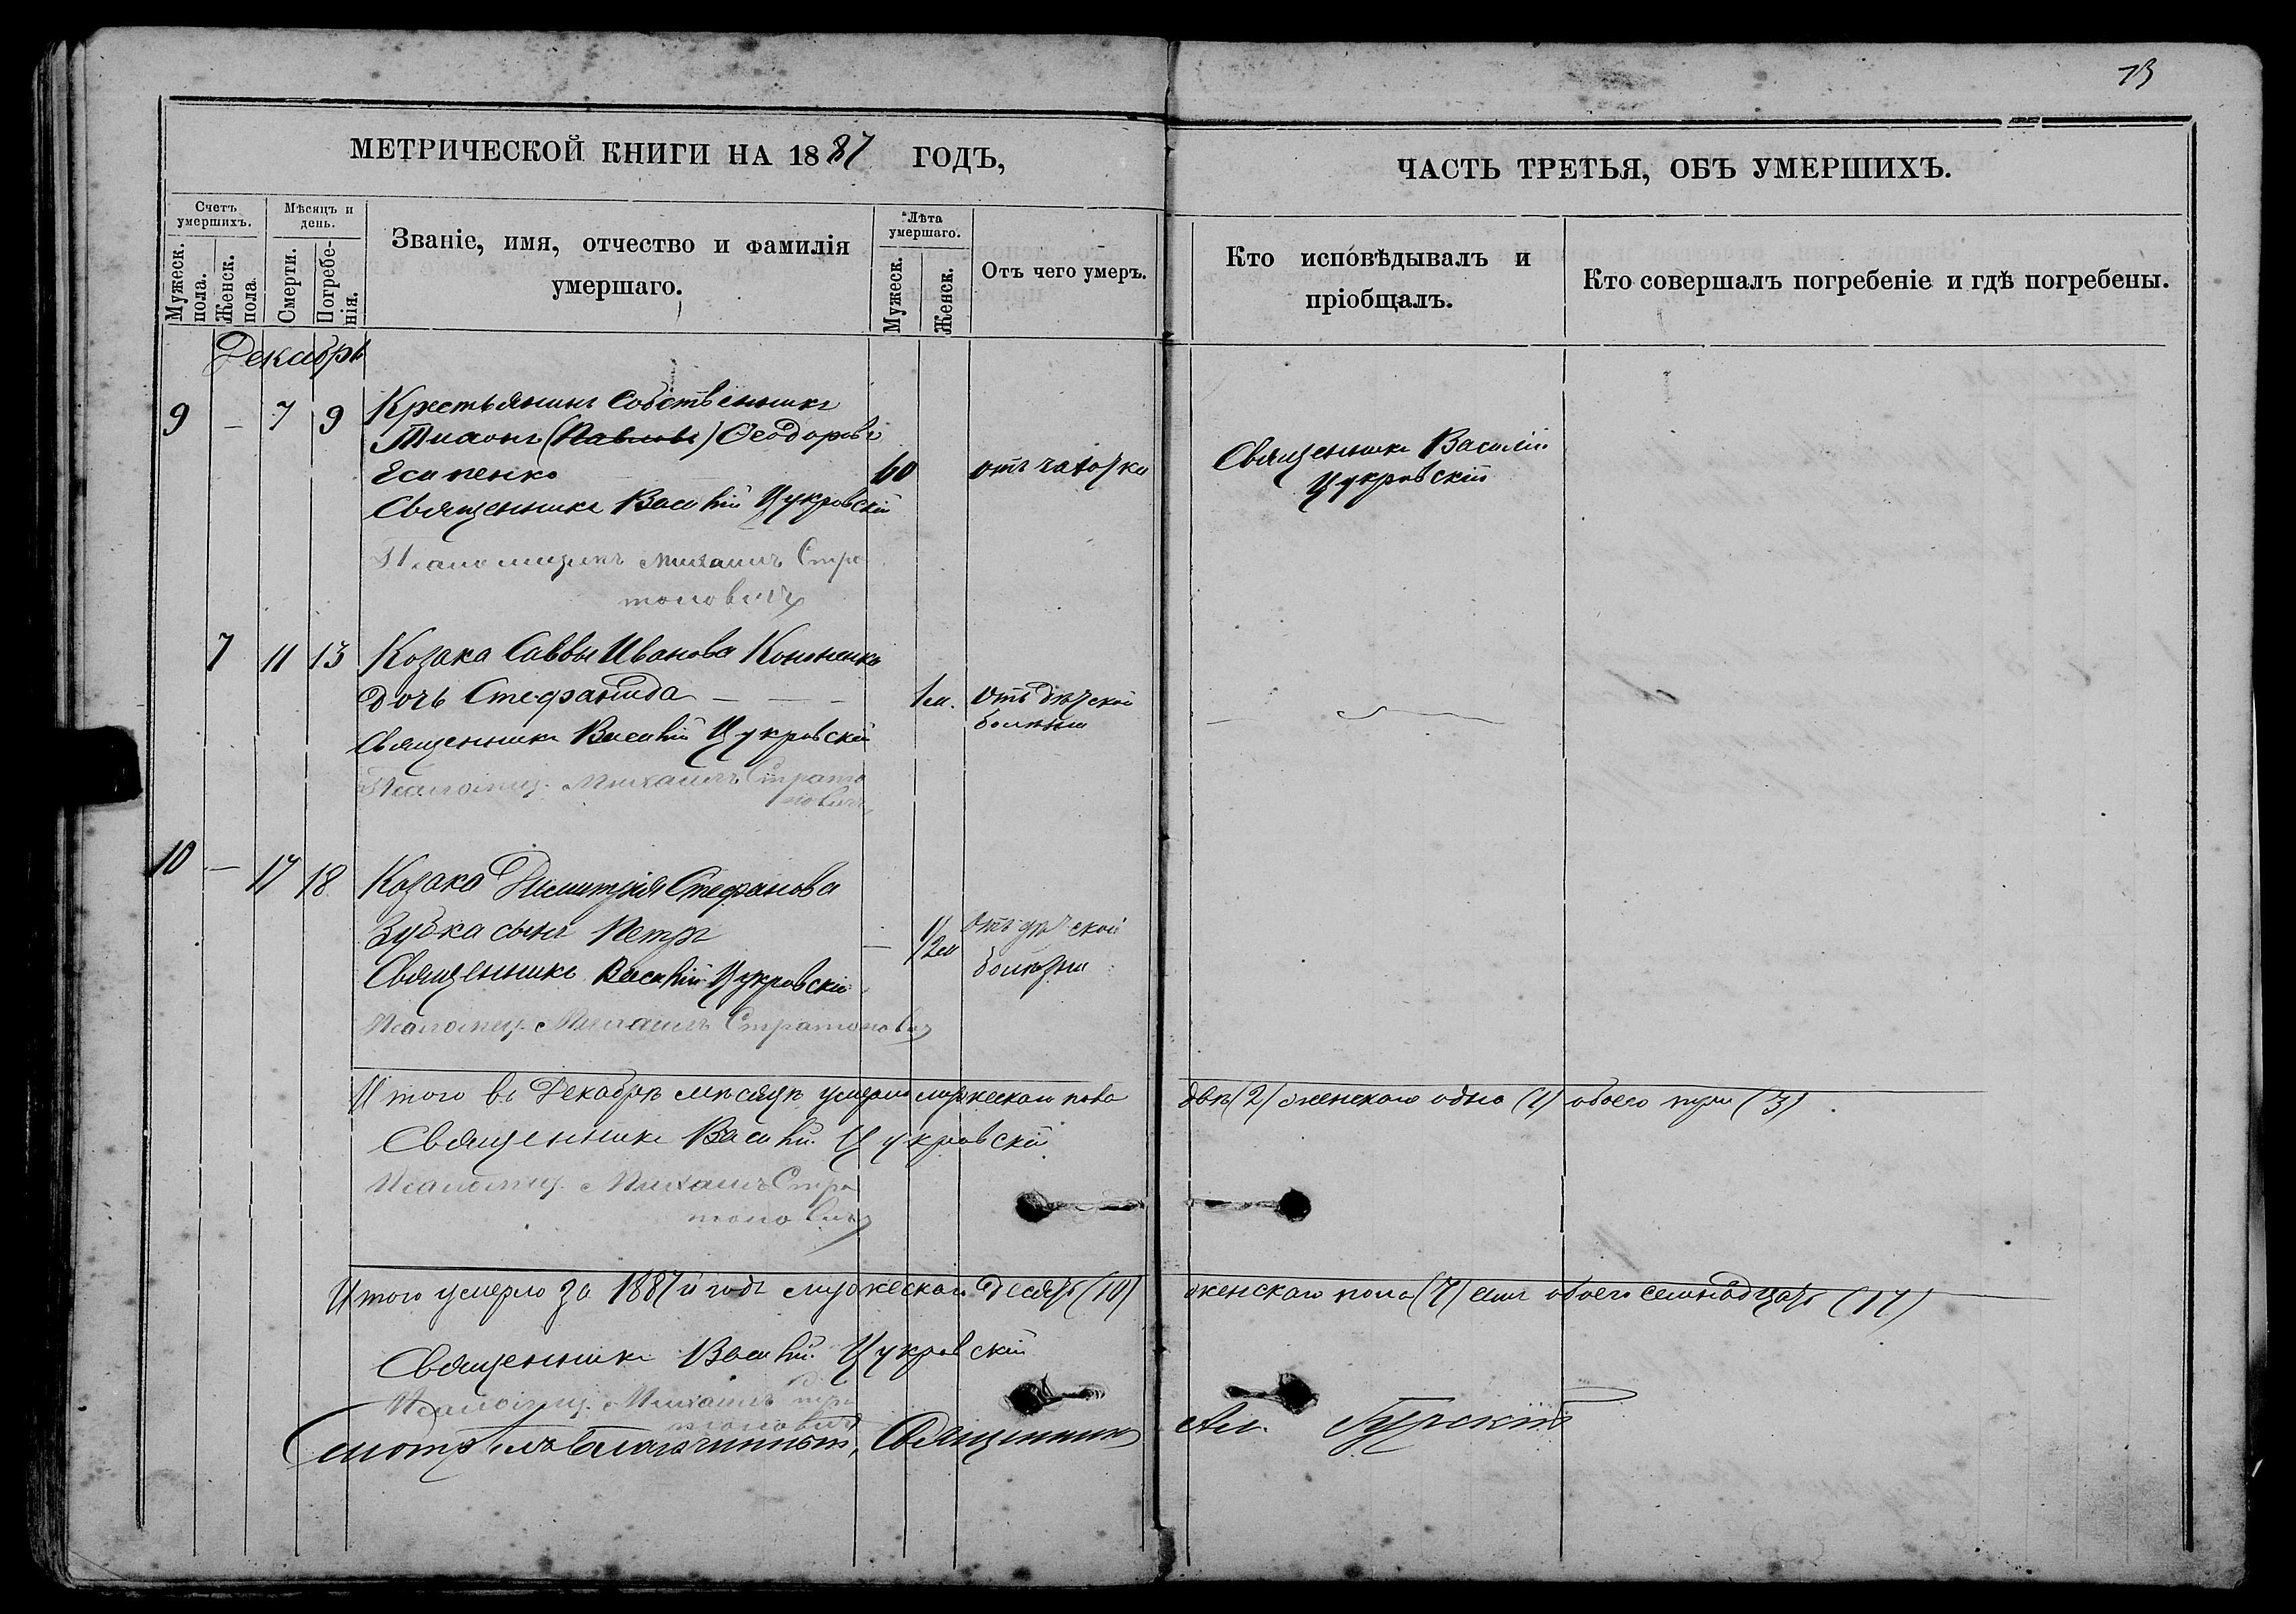 13
МЕТРИЧЕСКОЙ КНИГИ НА 1887 ГОДЪ,
ЧАСТЬ ТРЕТЬЯ, ОБЪ УМЕРШИХЪ.
Счетъ умершихъ.
Мужеск. пола.
Женск. пола.
Мѣсяцъ и день.
Смерти.
Погребенія.
Званіе, имя, отчество и фамилія
умершаго.
Лѣта умершаго.
Мужеск.
Женск.
Отъ чего умеръ.
Кто исповѣдывалъ и
пріобщалъ.
Кто совершалъ погребеніе и гдѣ погребены.
Декабрь
9 – 7 9 Крестьянинъ Собственникъ
(Павловъ) Ѳеодоровъ
Есипенко 60 отъ чахотки
Священникъ Василій Цукровскій
Священникъ Василій
Цукровскій
Псаломщикъ Михаилъ Стра
тоновичъ
7 11 13 Козака Саввы Иванова Кононенка
дочь Стефанида 1 м. Отъ дѣтской
болѣзни
Священникъ Василій Цукровскій
Псаломщ. Михаилъ Страто
новичъ
10 – 17 18 Козака Димитрія Стефанова
Зубка сынъ Петръ – 1/2 м Отъ дѣтской
болѣзни
Священникъ Василій Цукровскій
Псаломщ. Михаилъ Стратоновичъ
Итого въ Декабрѣ мѣсяцѣ умерло мужескаго пола два (2) женскаго одна (1) обоего три (3)
Священникъ Василій Цукровскій
Псаломщ. Михаилъ Стра
тоновичъ
Итого умерло за 1887й годъ мужескаго десять (10) женскаго пола (7) семь обоего семнадцать (17)
Священникъ Василій Цукровскій
Псаломщ. Михаилъ Стра
тоновичъ
Смотрѣлъ Благочинный, Священникъ Ал. Гурскій